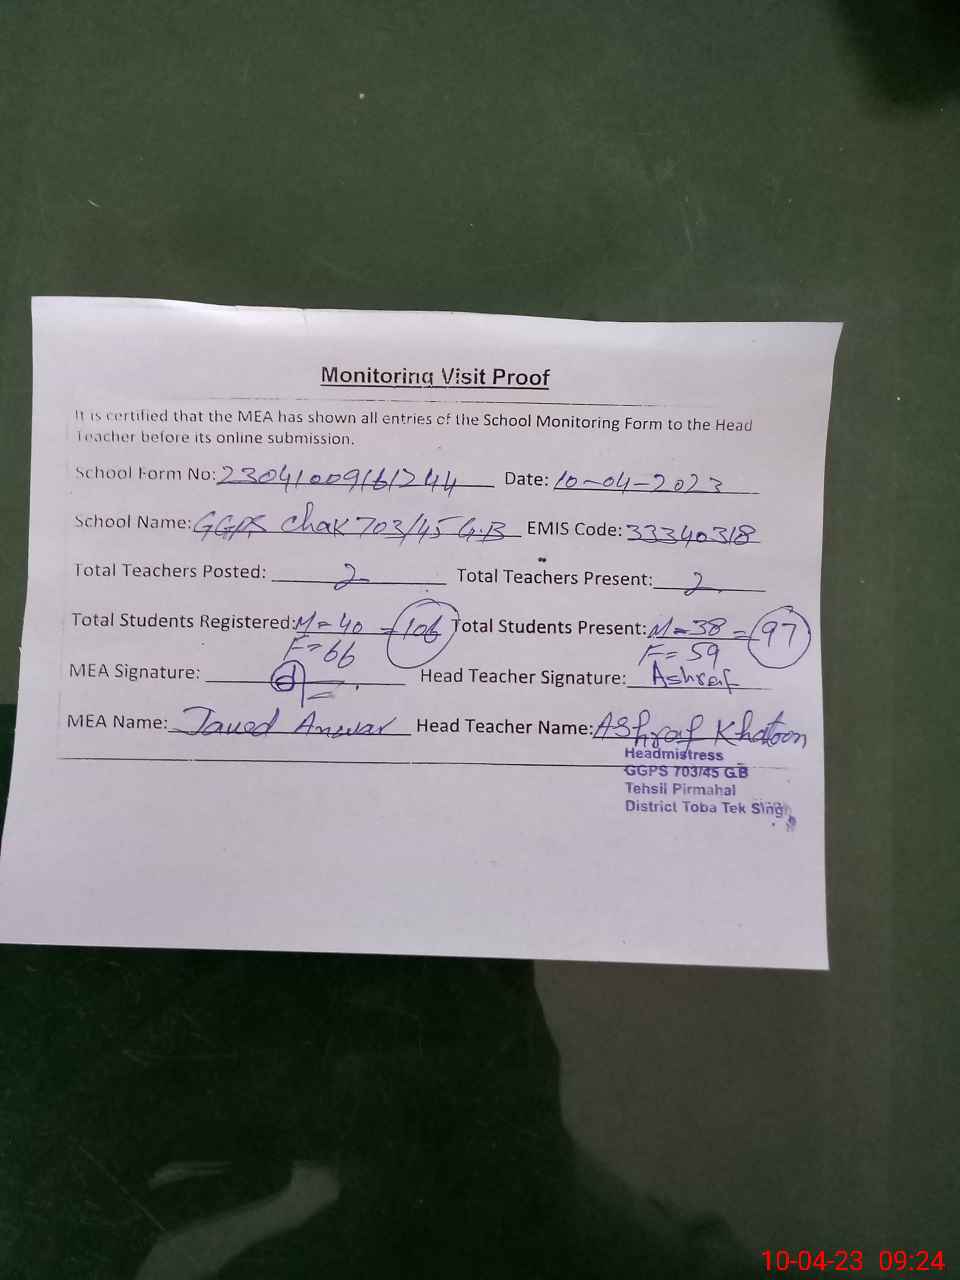 Monitoring Visit Proof
It is certified that the MEA has shown all entries of the School Monitoring Form to the Head
Teacher before its online submission.
School Form No: 23041009161244 Date: 10-04-2023
School Name: GGPS Chak 703/45 G.B EMIS Code: 33340318
Total Teachers Posted: 2 Total Teachers Present: 2
Total Students Registered: M=40 =106 Total Students Present: M=38 =97
F=66 F=59
MEA Signature: Head Teacher Signature: Ashraf
MEA Name: Javed Anwar Head Teacher Name: Ashraf Khatoon
Headmistress
GGPS 703/45 G.B
Tehsil Pirmahal
District Toba Tek Singh
10-04-23 09:24